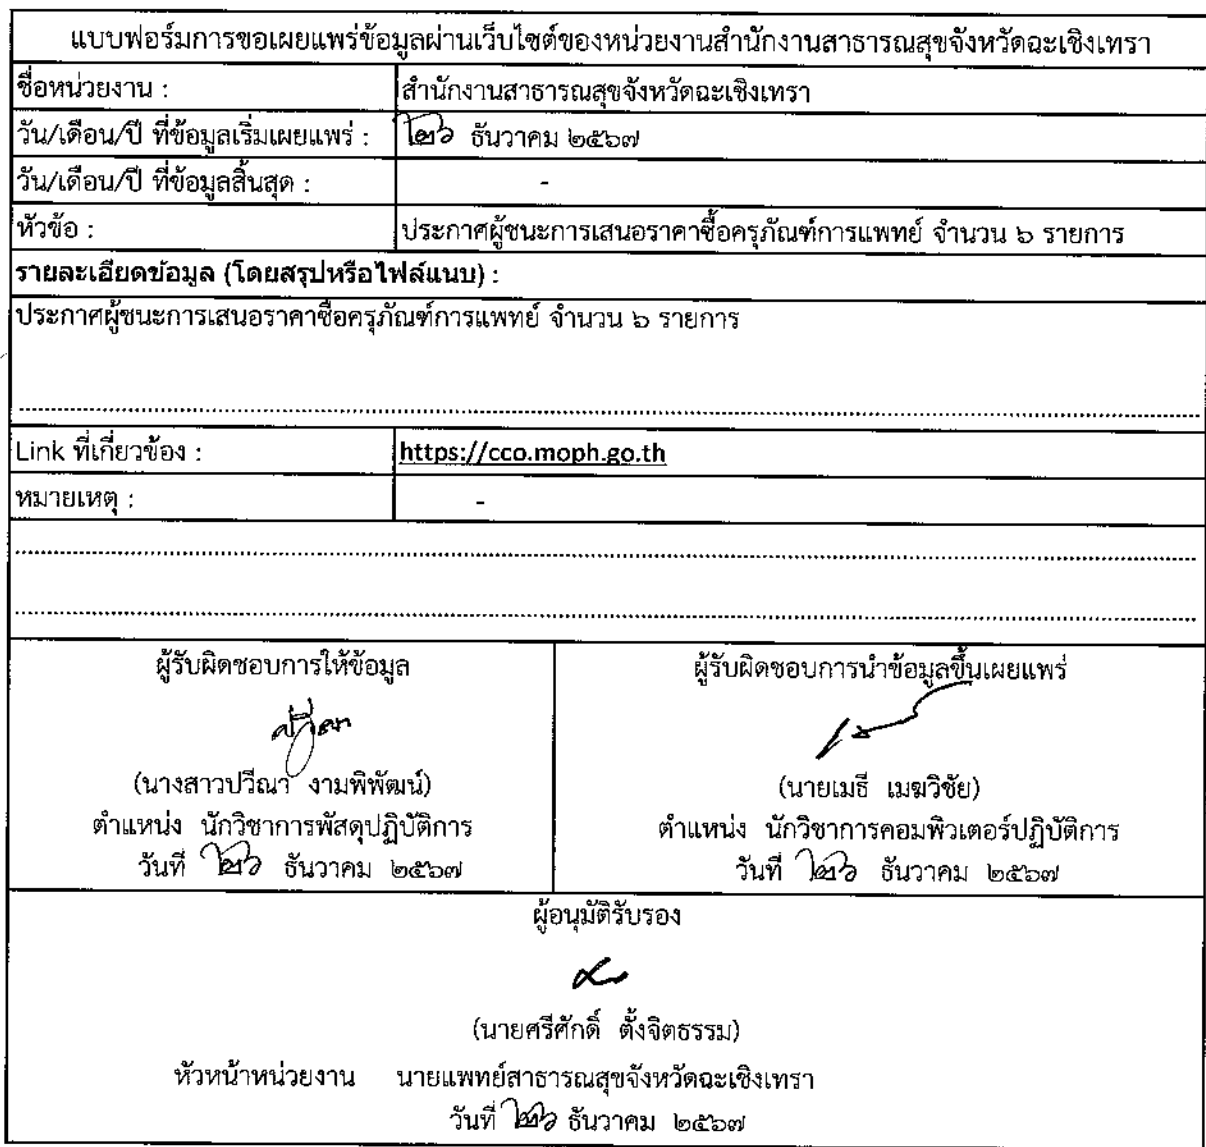 แบบฟอร์มการขอเผยแพร่ข้อมูลผ่านเว็บไซต์ของหน่วยงานสำนักงานสาธารณสุขจังหวัดฉะเชิงเทรา
ชื่อหน่วยงาน : สำนักงานสาธารณสุขจังหวัดฉะเชิงเทรา
วัน/เดือน/ปี ที่ข้อมูลเริ่มเผยแพร่ : ๒๖ ธันวาคม ๒๕๖๗
วัน/เดือน/ปี ที่ข้อมูลสิ้นสุด : -
หัวข้อ : ประกาศผู้ชนะการเสนอราคาซื้อครุภัณฑ์การแพทย์ จำนวน ๖ รายการ
รายละเอียดข้อมูล (โดยสรุปหรือไฟล์แนบ) :
ประกาศผู้ชนะการเสนอราคาซื้อครุภัณฑ์การแพทย์ จำนวน ๖ รายการ
Link ที่เกี่ยวข้อง : https://cco.moph.go.th
หมายเหตุ : -
ผู้รับผิดชอบการให้ข้อมูล
ปวีณา
(นางสาวปวีณา งามพิพัฒน์)
ตำแหน่ง นักวิชาการพัสดุปฏิบัติการ
วันที่ ๒๖ ธันวาคม ๒๕๖๗
ผู้รับผิดชอบการนำข้อมูลขึ้นเผยแพร่
(นายเมธี เมฆวิชัย)
ตำแหน่ง นักวิชาการคอมพิวเตอร์ปฏิบัติการ
วันที่ ๒๖ ธันวาคม ๒๕๖๗
ผู้อนุมัติรับรอง
(นายศรีศักดิ์ ตั้งจิตธรรม)
หัวหน้าหน่วยงาน นายแพทย์สาธารณสุขจังหวัดฉะเชิงเทรา
วันที่ ๒๖ ธันวาคม ๒๕๖๗